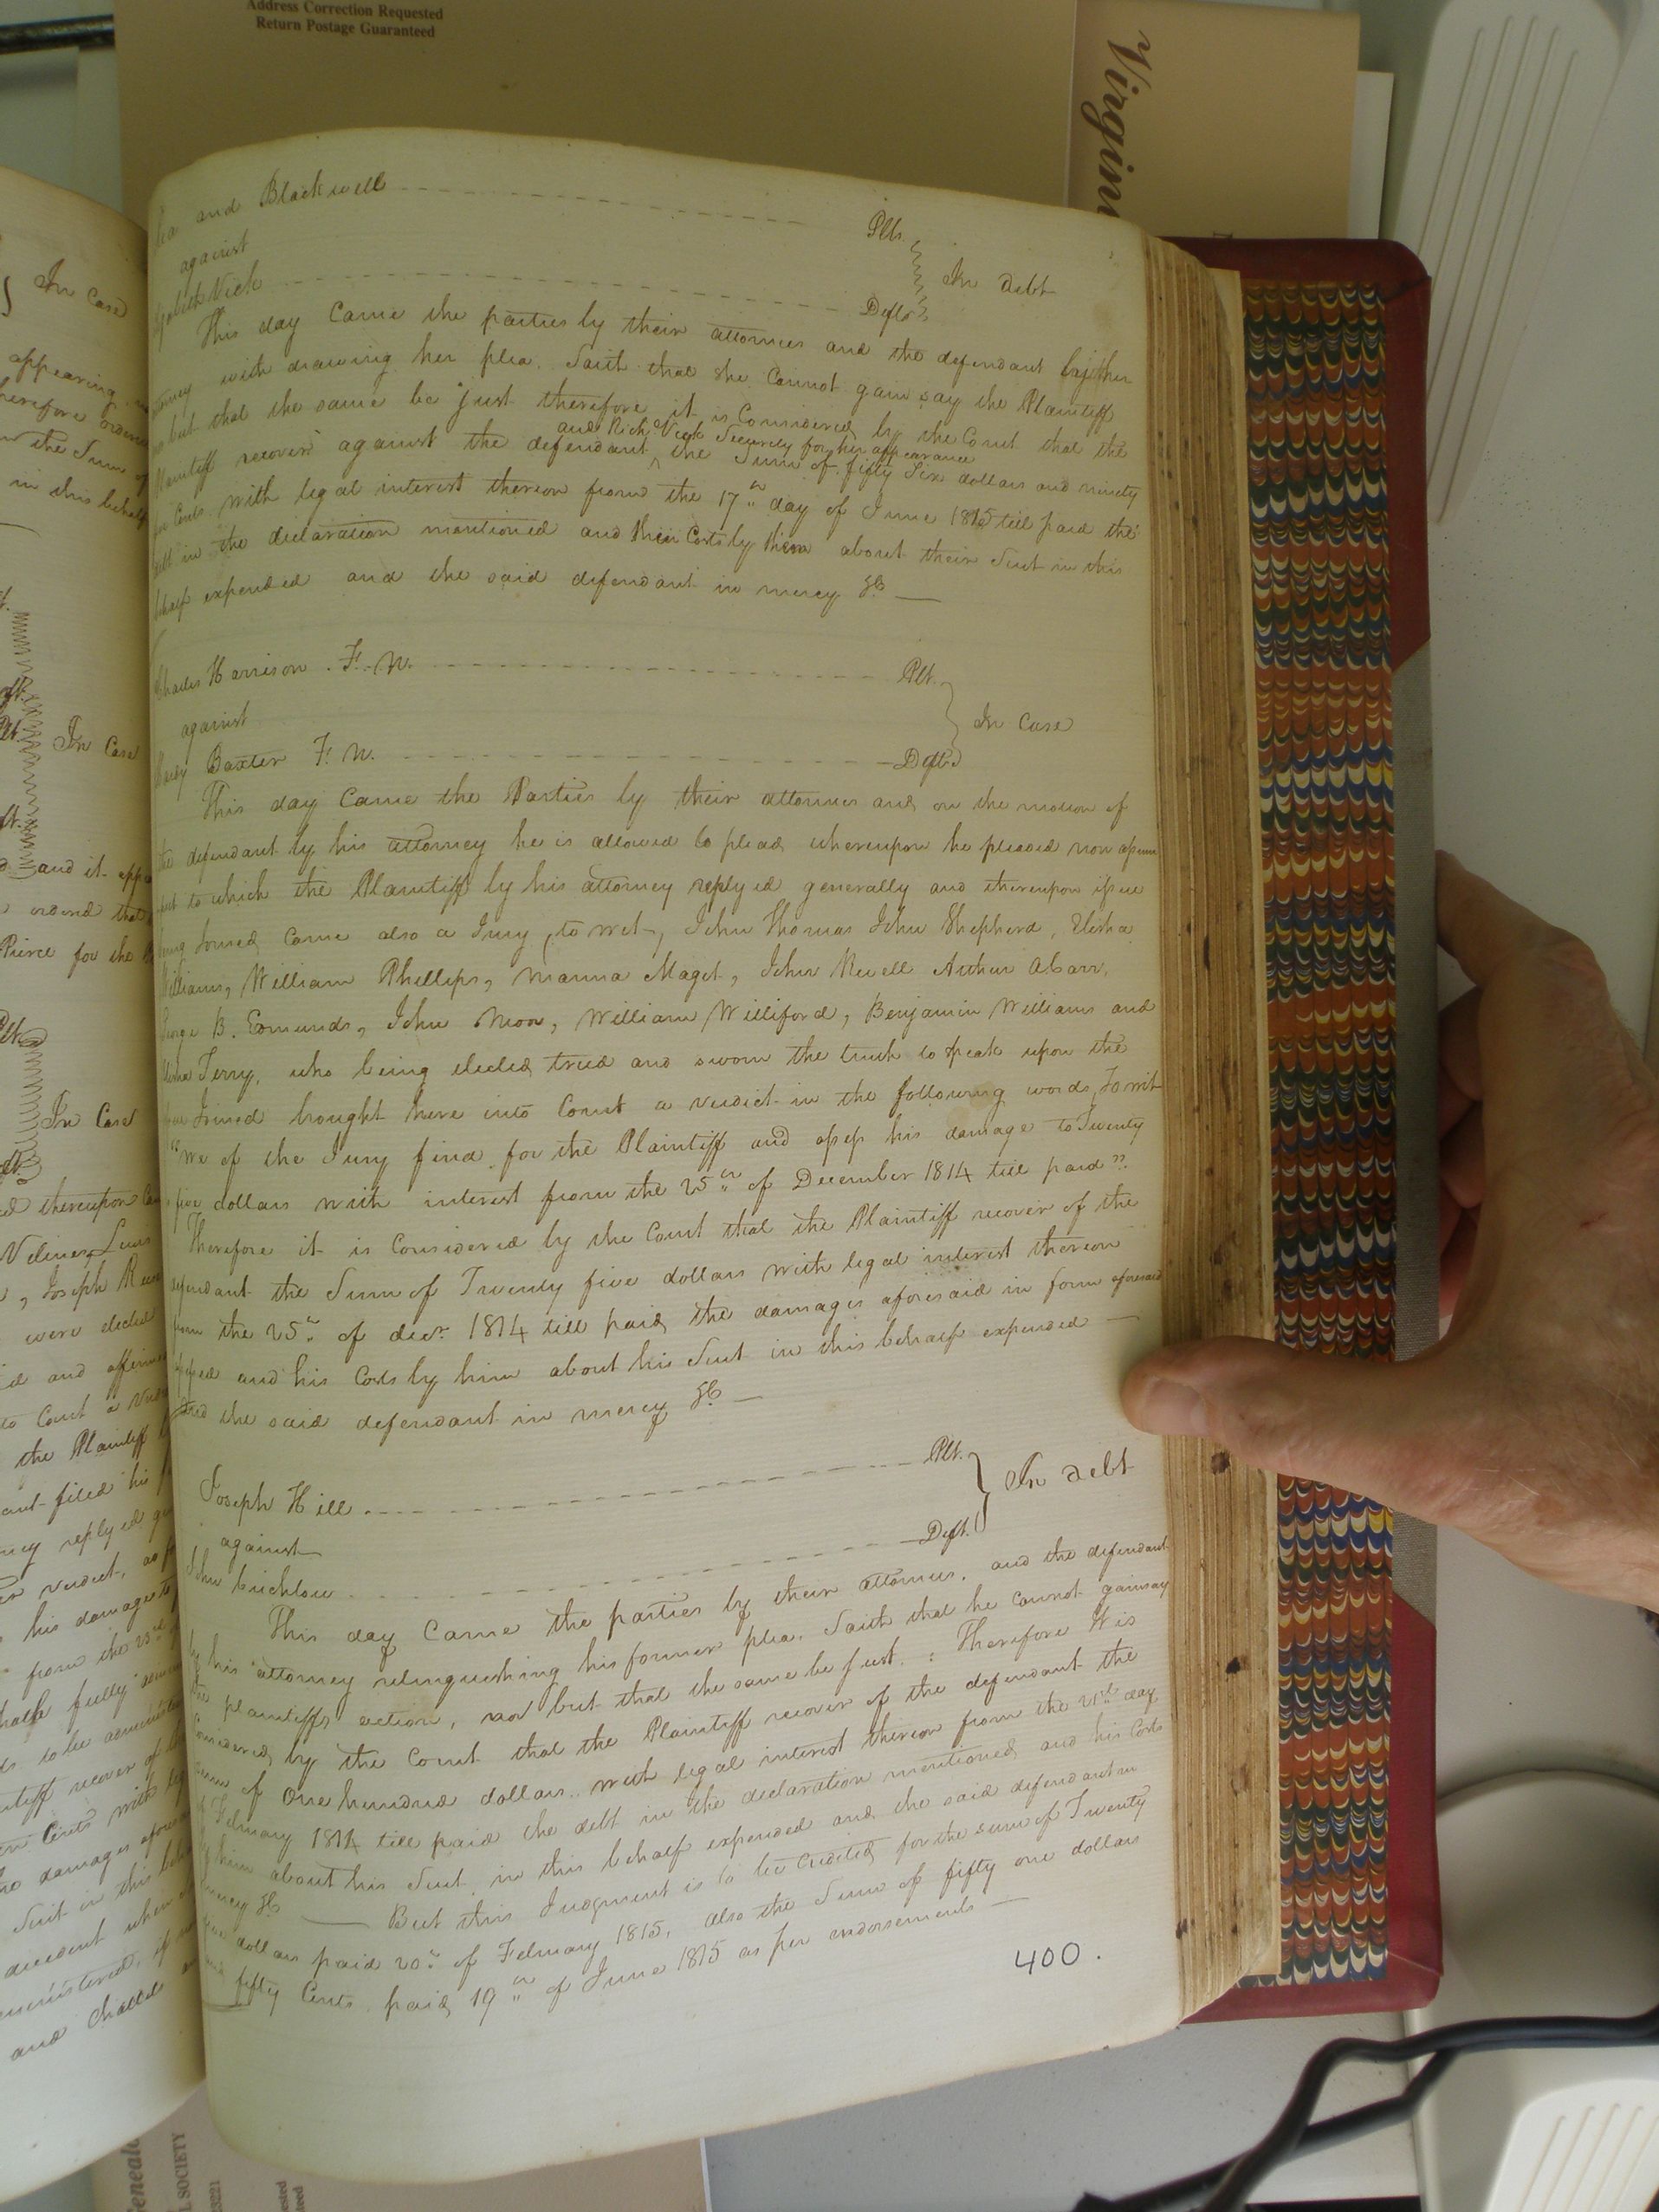 Address Correction Requested
Return Postage Guaranteed
Virgin
and Blackwell Plts.
against In debt
Vick Defts
This day Came the parties by their attornies and the defendant by her
with drawing her plea. Saith that she Cannot gain say the Plaintiff
but that the same be just therefore it is Considered by the Court that the
and Rich Vick Security for her appearance
Plaintiff recover against the defendant ^ the Sum of fifty Six dollars and ninety
Cents with legal interest thereon from the 17th day of June 1815 till paid the
debt in the declaration mentioned and their Costs by them about their Suit in this
behalf expended and the said defendant in mercy &c
Charles Harrison . F. N. Plt.
against In Case
Baxter F. N. Deft
This day Came the Parties by their attornies and on the motion of
the defendant by his attorney he is allowed to plead whereupon he pleaded non assum
to which the Plaintiff by his attorney replyed generally and thereupon issue
being Joined Came also a Jury, to wit, John Thomas John Shepherd, Elisha
Williams, William Phillips, Manna Maget, John Revell Arthur
George B. Edmunds, John Moor, William Williford, Benjamin Williams and
Terry, who being elected tried and sworn the truth to speak upon the
Issue Joined brought here into Court a verdict in the following words, To wit
"We of the Jury find for the Plaintiff and assess his damage to Twenty
five dollars with interest from the 25th of December 1814 till paid"
Therefore it is Considered by the Court that the Plaintiff recover of the
defendant the Sum of Twenty five dollars with legal interest thereon
from the 25th of decr. 1814 till paid, the damages aforesaid in form aforesaid
assessed and his Costs by him about his Suit in this behalf expended
and the said defendant in mercy &c
Joseph Hill Plt.
against In debt
John Crichlow Deft.
This day Came the parties by their attornies, and the defendant
by his attorney relinquishing his former plea. Saith that he Cannot gainsay
the plaintiffs action, nor but that the same be just. : Therefore It is
Considered by the Court that the Plaintiff recover of the defendant the
Sum of One hundred dollars with legal interest thereon from the 21st day
of February 1814 till paid the debt in the declaration mentioned and his Costs
by him about his Suit in this behalf expended and the said defendant in
mercy &c But this Judgment is to be Credited for the sum of Twenty
five dollars paid 20th of February 1815, also the Sum of fifty one dollars
and fifty Cents paid 19th of June 1815 as per endorsements
400.
In Case
appearing
therefore ordered
the Sum of
in this behalf
In Case
and it appe
ordered that
Pierce for the
In Case
thereupon
Joseph
were elected
and affirm
to Court a
the Plaintiff
filed his
replyed
verdict,
his damages to
from the 23d
fully
to be
recover of
Cents with
damages afores
Suit in this
decedent when
and Chattels
Geneal
L SOCIETY
23221